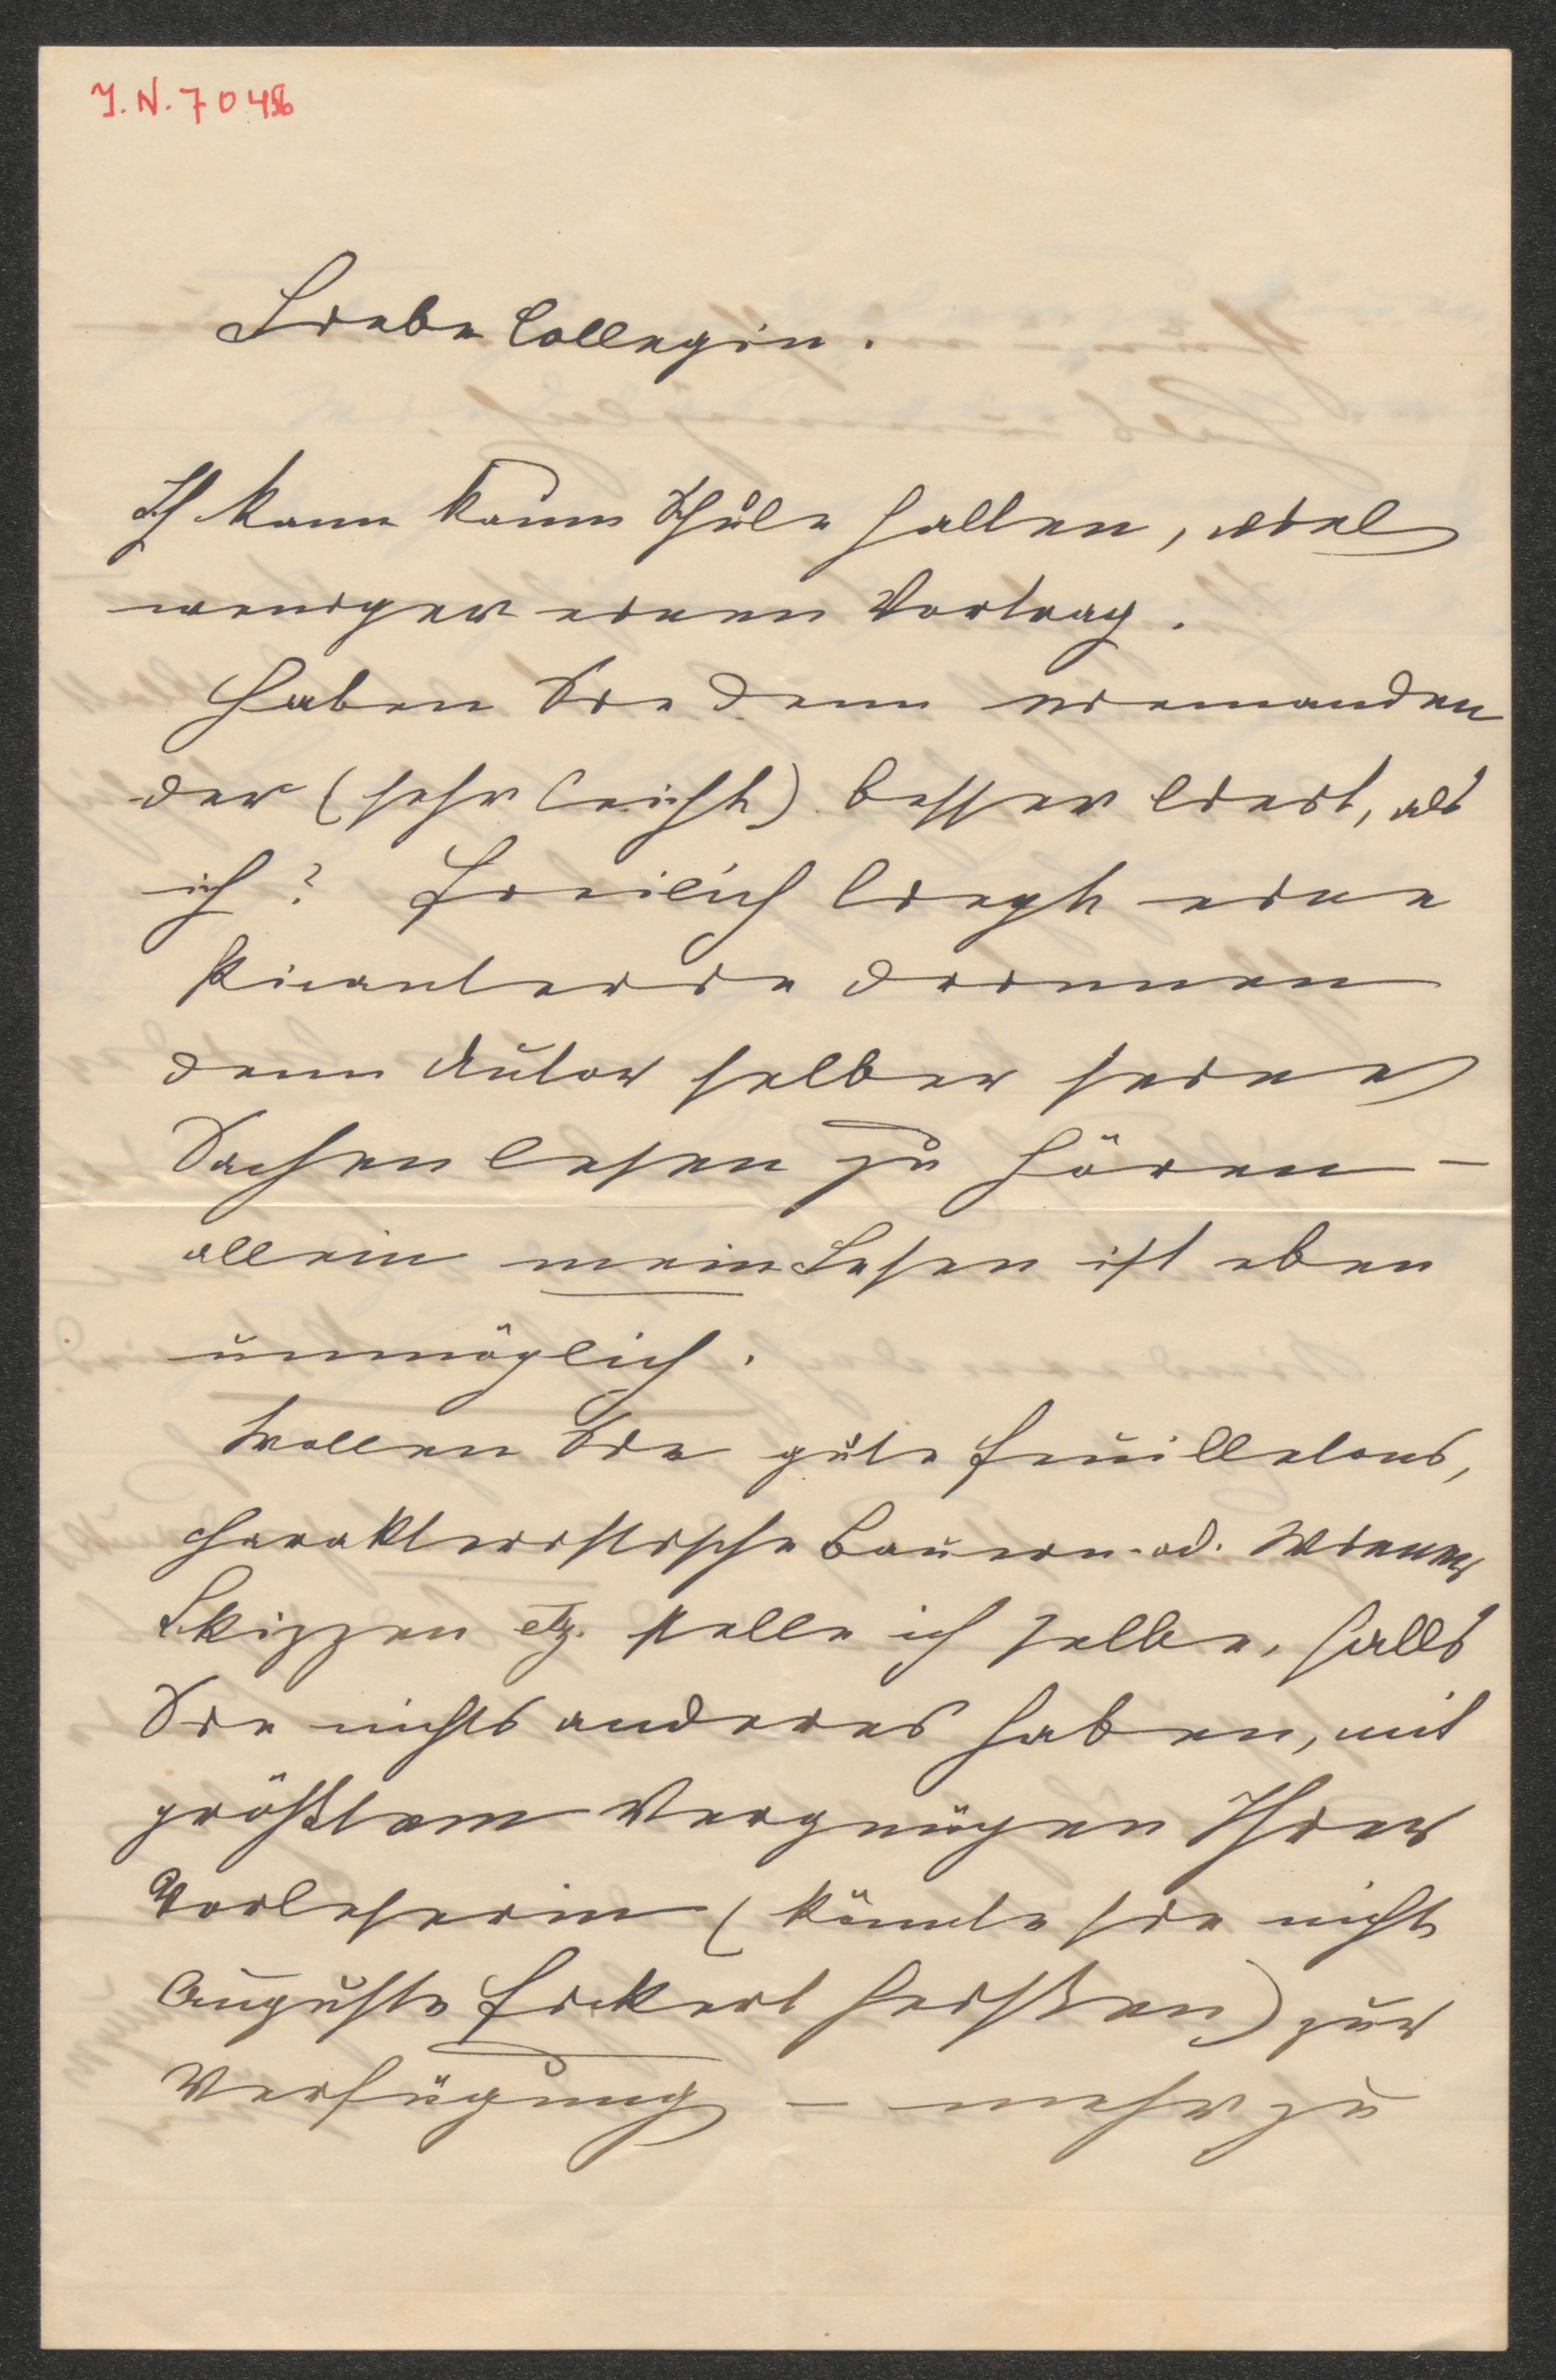 J.N. 7048
Liebe Collegin.
Ich kann kaum Schule halten, viel
weniger einen Vortrag.
Haben Sie denn niemanden
der (sehr leicht) besser liest, als
ich? Freilich liegt eine
Picanterie drinnen
den Autor selber seine
Sachen lesen zu hören –
allein mein Lesen ist eben
unmöglich.
Wollen Sie gute Feuilletons,
charakteristische Bauern- od. Wiener
Skizzen etz. stelle ich selbe, falls
Sie nichts anderes haben, mit
größtem Vergnügen Ihrer
Vorleserin (könnte sie nicht
Auguste heißen) zur
Verfügung – mehr zu